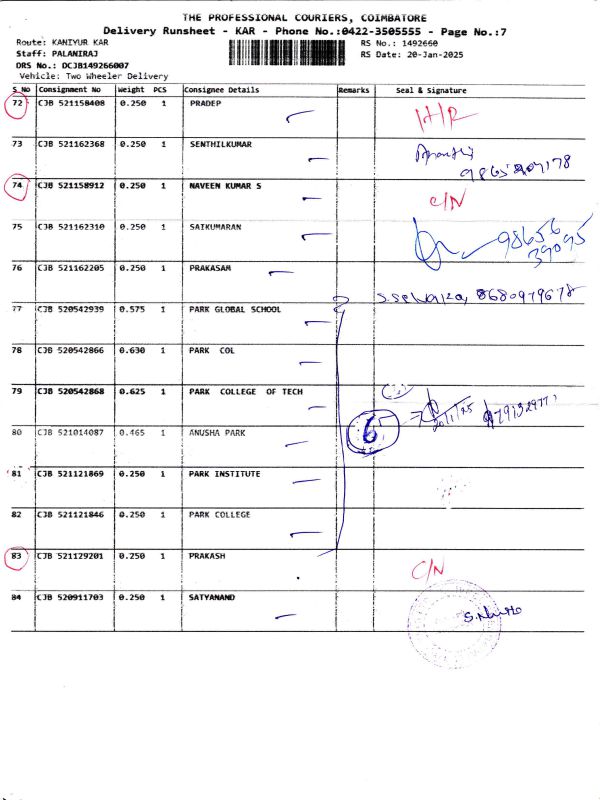 THE PROFESSIONAL COURIERS, COIMBATORE
Delivery Runsheet - KAR - Phone No.:0422-3505555 - Page No.:7
Route: KANIYUR KAR RS No.: 1492660
Staff: PALANIRAJ RS Date: 20-Jan-2025
DRS No.: DCJB149266007
Vehicle: Two Wheeler Delivery
S No Consignment No Weight PCS Consignee Details Remarks Seal & Signature
72 CJB 521158408 0.250 1 PRADEP H/R
73 CJB 521162368 0.250 1 SENTHILKUMAR
74 CJB 521158912 0.250 1 NAVEEN KUMAR S C/N
75 CJB 521162310 0.250 1 SAIKUMARAN 98656
39095
76 CJB 521162205 0.250 1 PRAKASAM 8680979678
77 CJB 520542939 0.575 1 PARK GLOBAL SCHOOL
78 CJB 520542866 0.630 1 PARK COL
79 CJB 520542868 0.625 1 PARK COLLEGE OF TECH
80 CJB 521014087 0.465 1 ANUSHA PARK 6
81 CJB 521121869 0.250 1 PARK INSTITUTE
82 CJB 521121846 0.250 1 PARK COLLEGE
83 CJB 521129201 0.250 1 PRAKASH C/N
84 CJB 520911703 0.250 1 SATYANAND